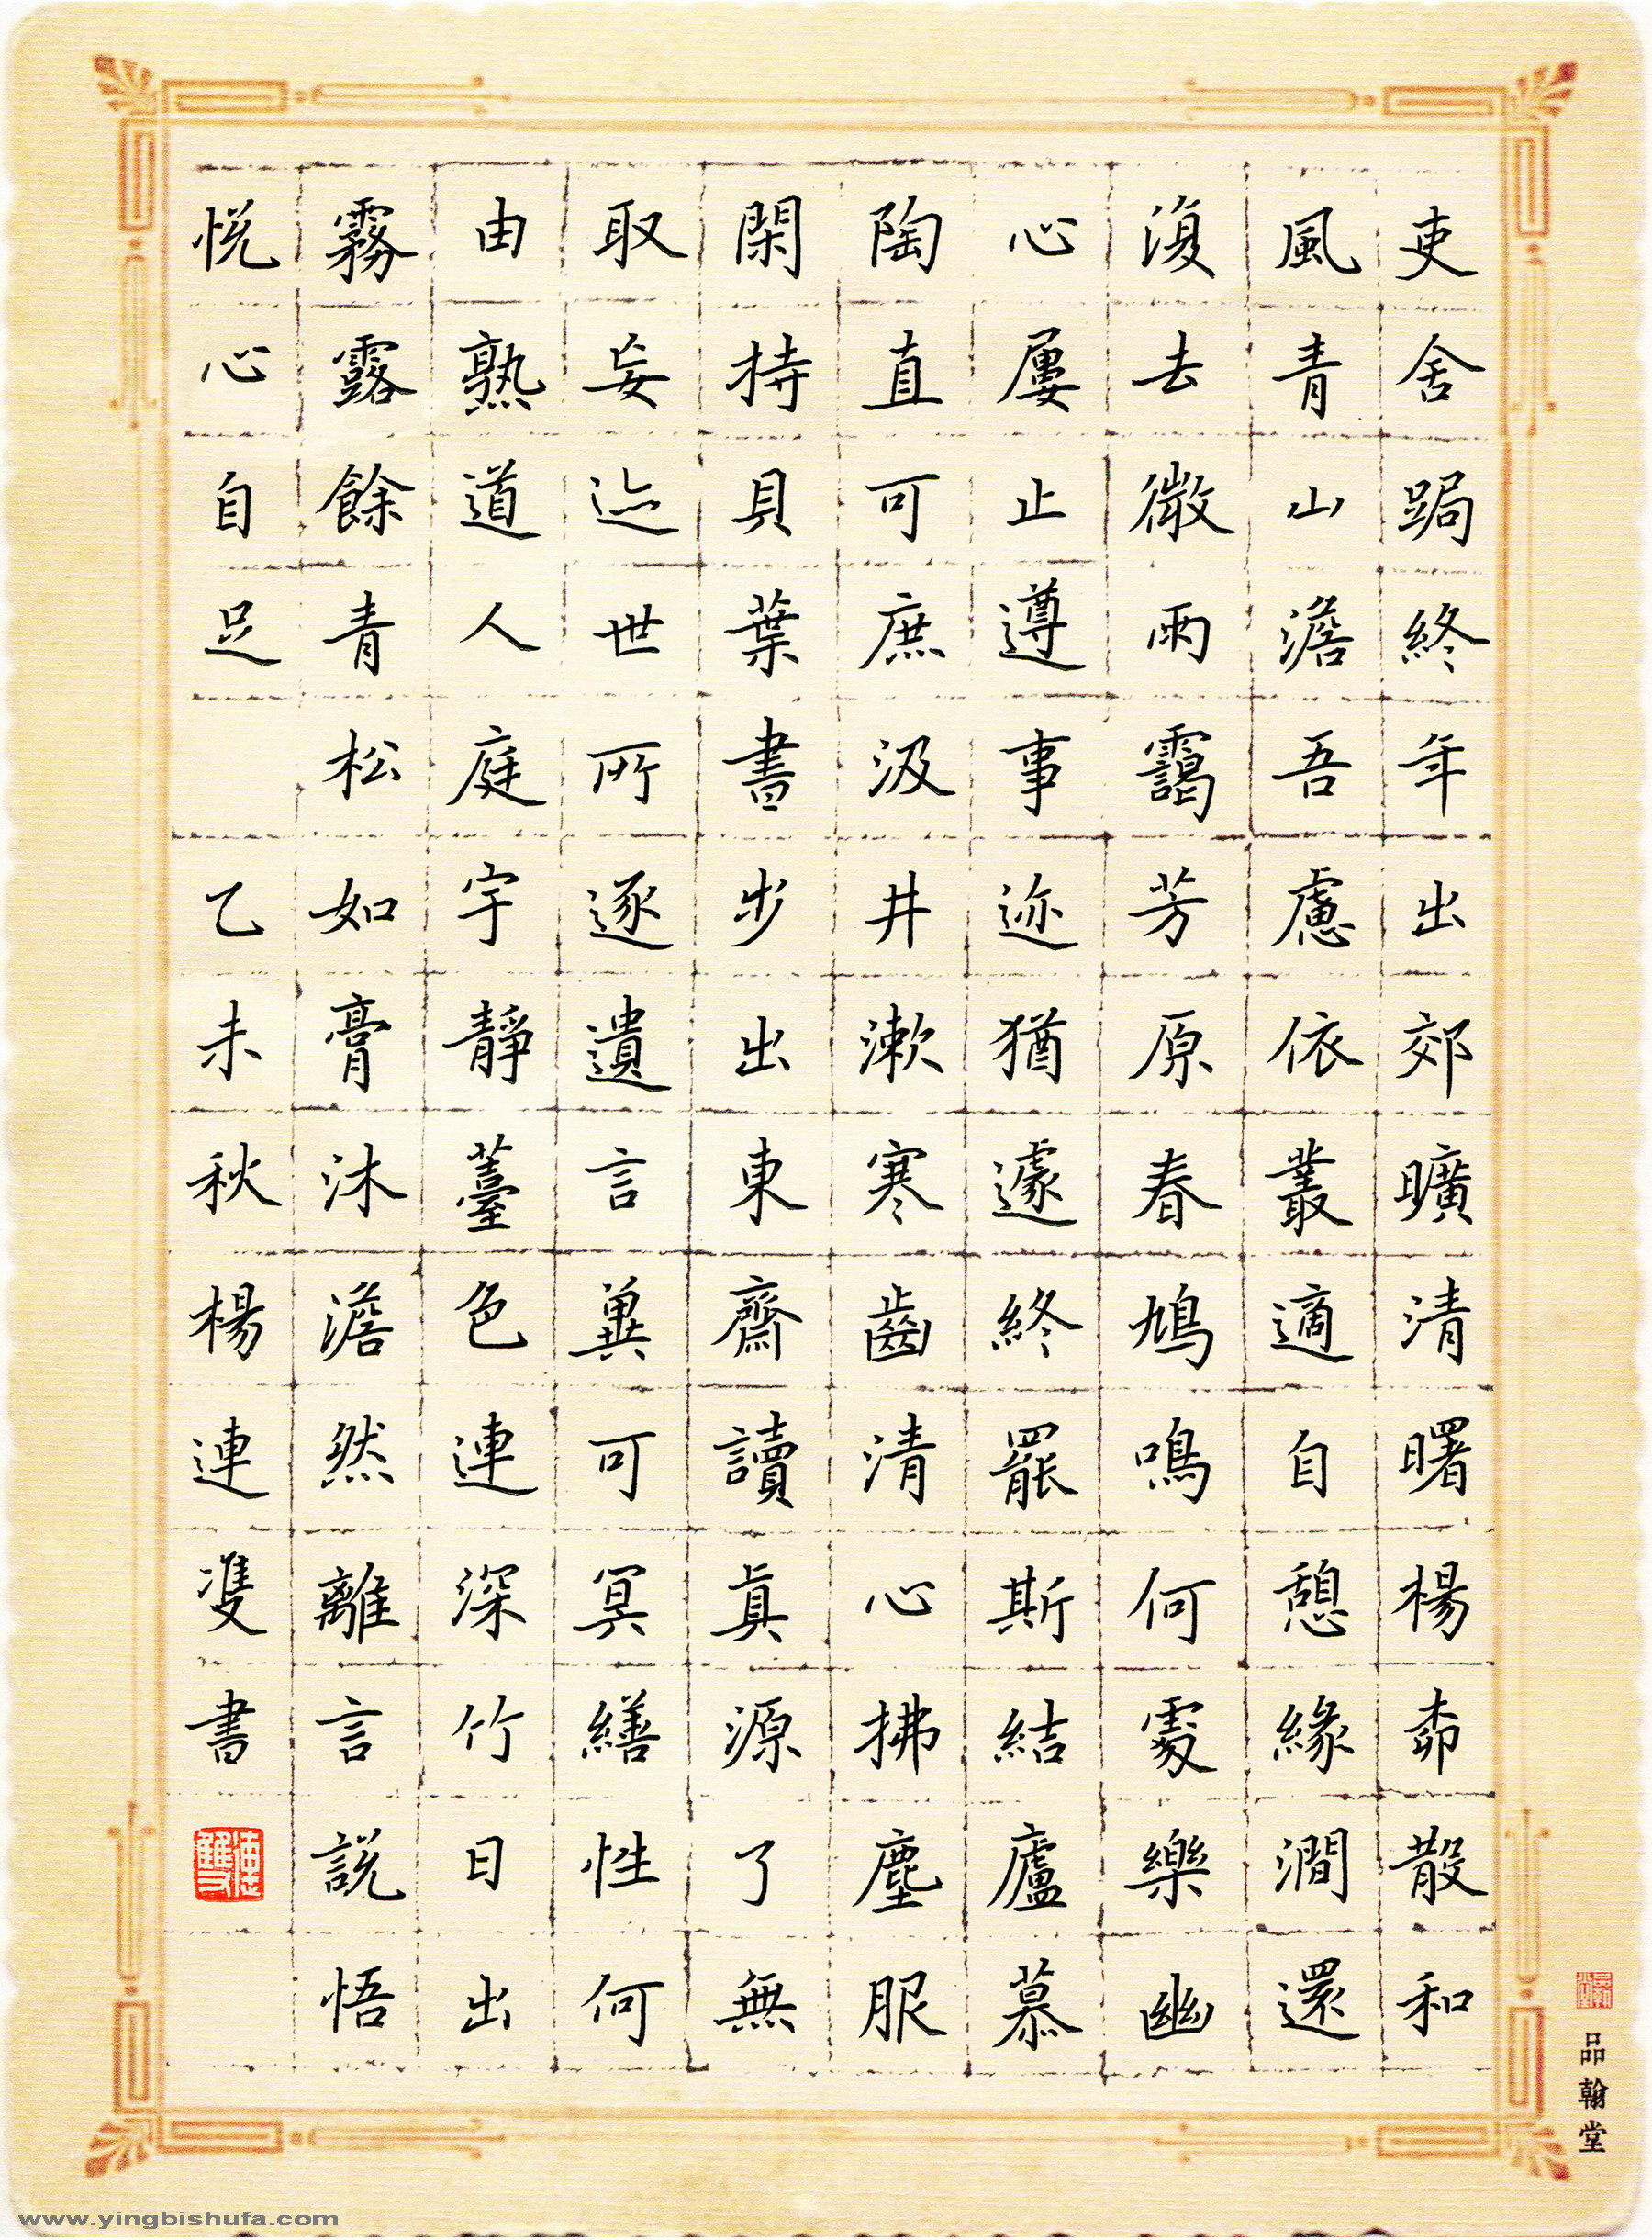 吏舍跼終年出郊曠清曙楊柳散和
風青山澹吾慮依叢適自憩緣澗還
復去微雨靄芳原春鳩鳴何處樂幽
心屢止遵事迹猶遽終罷斯結廬慕
陶直可庶汲井漱寒齒清心拂塵服
閑持貝葉書步出東齋讀真源了無
取妄迹世所逐遺言冀可冥繕性何
由熟道人庭宇靜薹色連深竹日出
霧露餘青松如膏沐澹然離言說悟
悅心自足 乙未秋楊連隻書
連雙
品翰堂
www.yingbishufa.com